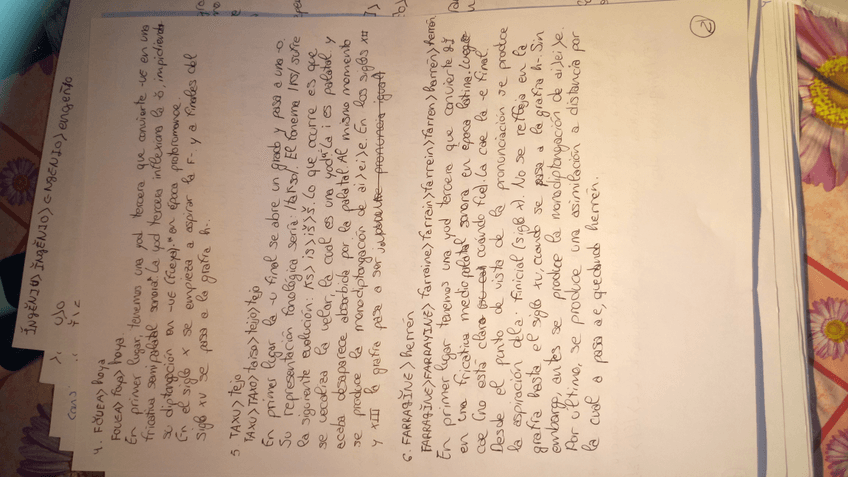 ĬNGĔNIU> ĬNGĔNIO> ENGENIO> engeño
4. FŎVEA> hoya
FOVEA> foya> hoya
En primer lugar, tenemos una yod tercera que convierte -ve en una
fricativa semipalatal sonora. La yod tercera inflexiona la ŏ, impidiendo
su diptongación en -ue (fueya). en época protorromance.
En el siglo X se empieza a aspirar la F- y a finales del
siglo XV se pasa a la grafía h-.
5 TAXU> tejo
TAXU> TAXO> taišo> teijo> tejo
En primer lugar la -u final se abre un grado y pasa a una -o.
Su representación fonológica sería: /takso/. El fonema /ks/ sufre
la siguiente evolución: ks> is> iš> š. Lo que ocurre es que
se vocaliza la velar, la cual es una yod 4ª. La i es palatal y
acaba desaparece absorbida por la palatal. Al mismo momento
se produce la monodiptongación de ai> ei> e. En los siglos XII
y XIII la grafía pasa a ser j
6. FARRAGĬNE> herrén
FARRAGĬNE> FARRAYINE> farraine> farrain> farrein> farren> harrén> herrén
En primer lugar tenemos una yod tercera que convierte gĭ
en una fricativa mediopalatal sonora en época latina. Luego
cae (no está claro cuándo fue). La cae la -e final.
Desde el punto de vista de la pronunciación se produce
la aspiración de la f inicial (siglo X). No se refleja en la
grafía hasta el siglo XV, cuando se pasa a la grafía h-. Sin
embargo antes se produce la monodiptongación de ai> ei> e.
Por último, se produce una asimilación a distancia por
la cual a pasa a e, quedando herrén.
2